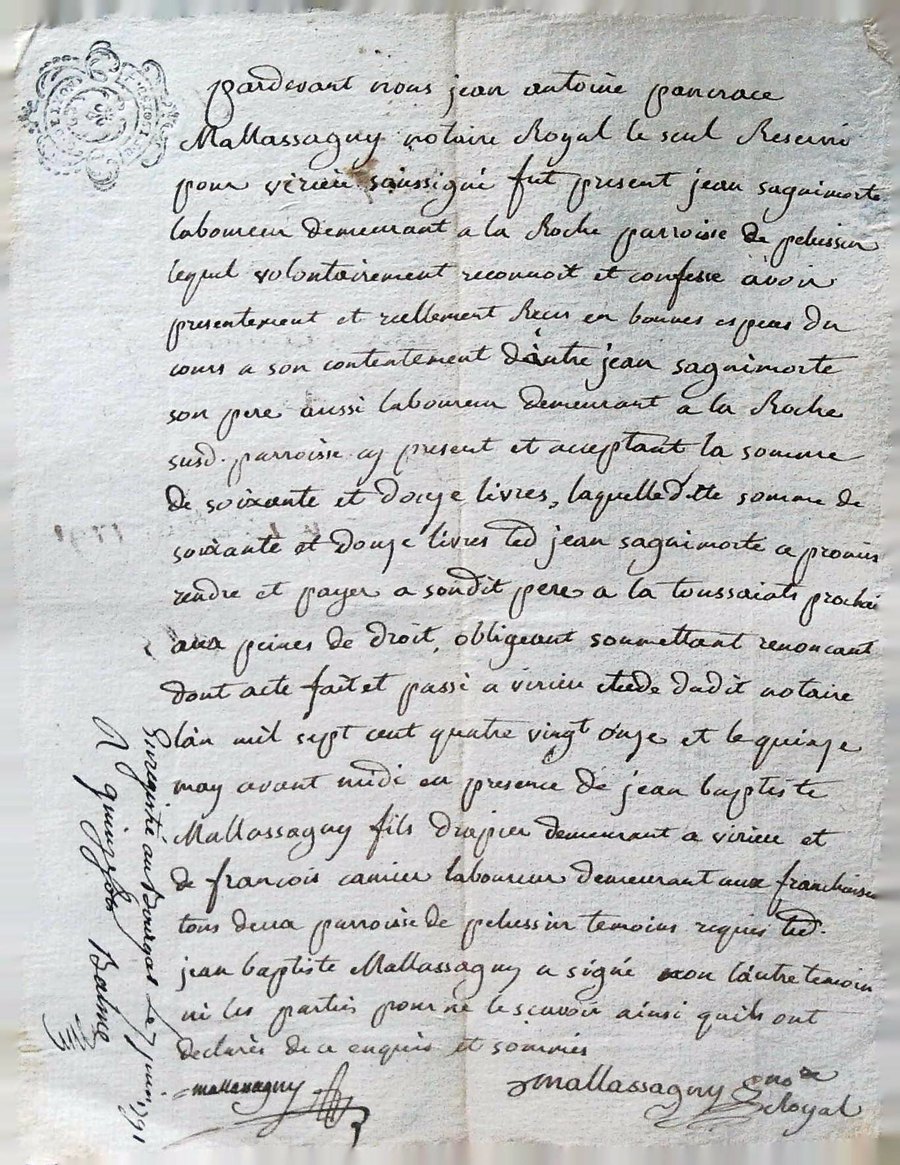 pardevant nous jean antoine pancrace
Mallassagny notaire Royal le seul Reservé
pour virieu soussigné fut present jean saguimorte
laboureur demeurant a la Roche parroisse de pelussin
lequel volontairement reconnoit et confesse avoir
presentement et reellement Recus en bonnes especes du
cours a son contentement d'autre jean saguimorte
son pere aussi laboureur demeurant a la Roche
susd. parroisse cy present et acceptant la somme
de soixante et douze livres, laquelle ditte somme de
soixante et douze livres led jean saguimorte a promis
rendre et payer a sondit pere a la toussaints prochai
aux peines de droit, obligeant soumettant renoncant
dont acte fait et passé a virieu etude dudit notaire
l'an mil sept cent quatre vingt onze et le quinze
may avant midi en presence de jean baptiste
Mallassagny fils drapier demeurant a virieu et
de françois camier laboureur demeurant aux franchises
tous deux parroisse de pelussin temoins requis led.
jean baptiste Mallassagny a signé non l'autre temoin
ni les parties pour ne le scavoir ainsi quils ont
declarés de ce enquis et sommés
mallassagny
mallassagny nore
Royal
Enregistré au Bourgar Le 7 juin 1791
R quinze sols Balme